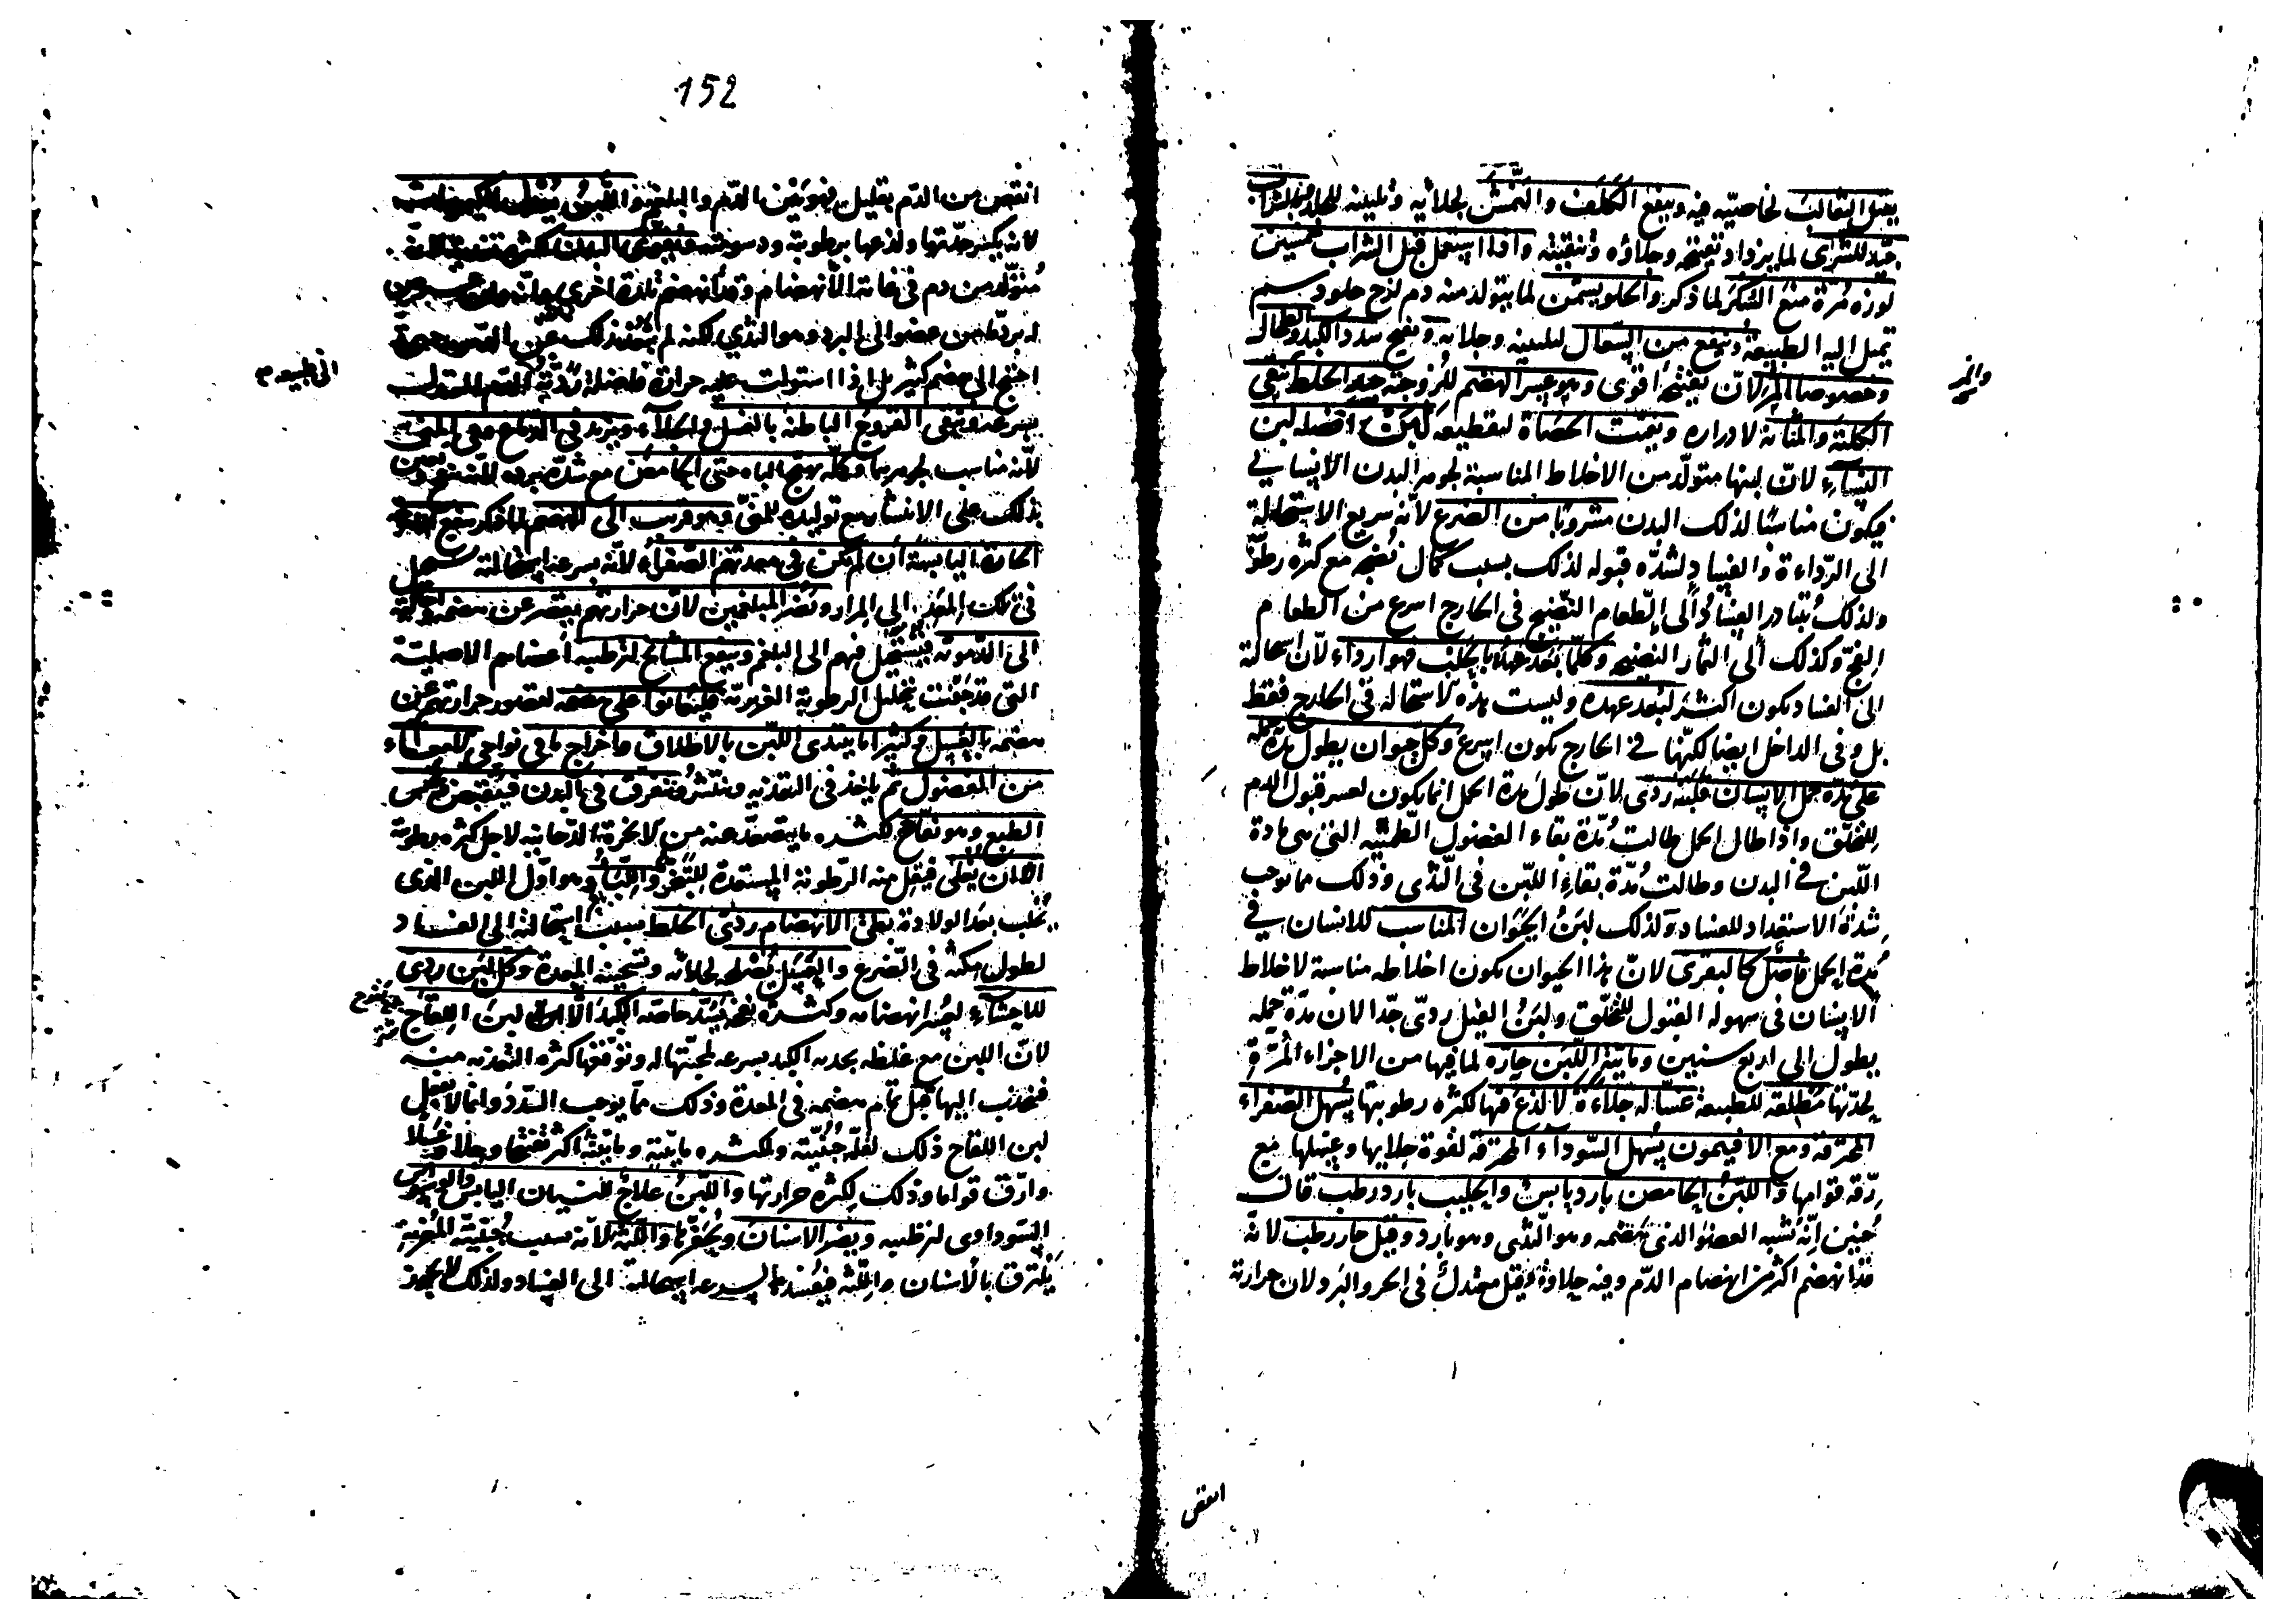 يقتل الثعالب لخاصيّة فيه وينفع الكلف والنمش بجلائه وتليينه للجلد وبالشراب
جيد للشرى لما يزداد تفتيحه وجلاؤه وتنقيته واذا استعمل قبل الشراب خمسين
لوزه مُرّة منع السُّكر لما ذكر والحلو يسمّن لما يتولد منه دم لزج حلو دسم
تميل اليه الطبيعة وينفع من السّعال لتليينه وجلائه ويفتح سدد الكبد والطحال
والمر
وخصوصا المرّ لانّ تفتيحه اقوى وهو عسر الهضم للزوجته جيد الخلط ينقي
الكلية والمثانة لادراره ويفتت الحصاة لتقطيعه لَبَن افضله لبن
النساء لانّ لبنها متولّد من الاخلاط المناسبة لجوهر البدن الانساني
فيكون مناسبا لذلك البدن مشروبا من الضرع لانّه سريع الاستحالة
الى الرّداءة والفساد لشدّة قبوله لذلك بسبب كمال نُضجه مع كثرة رطوبته
ولذلك يتبادر الفساد الى الطعام النّضيج في الخارج اسرع من الطعام
الفجّ وكذلك الى الثمار النضيجة وكلّما بَعُد عهده بالحلب فهو اردأ لانّ استحالته
الى الفساد تكون اكثر لبُعد عهده وليست هذه الاستحالة في الخارج فقط
بل وفي الداخل ايضا لكنّها في الخارج تكون اسرع وكلّ حيوان يطول مدّة حمله
على مدّة حمل الانسان فلبنه ردىّ لانّ طول مدة الحمل انما يكون لعسر قبول الدم
للتخلّق واذا طال الحمل طالت مُدّة بقاء الفضول الطمثيه التي هى مادة
اللّبن في البدن وطالت مُدّة بقاء اللّبن في الثّدى وذلك مما يوجب
شدّة الاستعداد للفساد ولذلك لبَنُ الحَيوان المناسب للانسان في
مُدة الحمل فاضل كالبقرى لانّ هذا الحيوان تكون اخلاطه مناسبة لاخلاط
الانسان في سهولة القبول للتخلّق ولبَنُ الفيل ردىّ جدّا لان مدّة حمله
يطول الى اربع سنين ومائيّة اللّبَن حارّة لما فيها من الاجزاء المُرّة
لحدّتها مُطلِقة للطبيعة غسّالة جلّاءة لا لذع فيها لكثرة رطوبتها يُسهل الصّفراء
المحترقة ومع الافتيمون يُسهل السّوداء المحترقة لقوة جلائها وغسلها مع
رقّة قوامها واللبَنُ الحامض بارد يابس والحليب بارد رطب قالت
حُنين انّه يُشبه العضو الذى يَهضمه وهو الثّدى وهو بارد وقيل حار رطب لانّه
قد انهضم اكثر من انهضام الدّم وفيه حلاوة وقيل معتدل في الحر والبرد لان حرارته
انقص
152
انقص من الدّم بقليل فهو بَيْن الدّم والبلغم واللّبن
لانه يكسر حدّتها ولذعها برطوبته ودسومته ويغذى البدن
مُتَوَّلد من دم في غاية الانهضام وقد انهضم تارة اخرى
له بردّه من عضو الى البرد وهو الثدي لكنه لم يتعدّ ذلك عن الدّم
الى طبيعة م
احتج الى هضم كثير بل اذا استولت عليه حرارة فاضلة ردّته الى الدّم
بسرعة وينقى القروح الباطنة بالغسل والجلاء ويزيد في الدّماغ
لانّه مناسب لجوهرهما وكلّه يهيّج الباه حتى الحامض مع شدّة برده للنفخ ويعين
بذلك على الانتشار مع توليده للمنىّ وهو قريب الى الهضم لما ذكر ينفع
الحارّة اليابسة ان لم تكن في معدتهم الصّفراء لانّه بسرعة استحالته يستحيل
في تلك المعد الى المرار ويضر المبلغمين لانّ حرارتهم يقصر عن هضمه واحالته
الى الدّموية فيستحيل فيهم الى البلغم وينفع المشايخ لترطيبه اعضاءهم الاصلية
التي قد جفّت بتحليل الرطوبة الغريزيّة فليُعانوا على هضمه لقصور حرارتهم عن
هضمه بالعسل وكثيرا ما يبتدى اللّبن بالاطلاق واخراج ما في نواحي الامعاء
من الفضول ثم ياخذ في التغذية وينتشر ويتفرق في البدن فينقبض ويحبس
الطبع وهو نفّاخ لكثرة ما يتصعّد عنه من الابخرة الدّخانية لاجل كثرة رطوبته
الا ان يُغلى فيقل منه الرّطوبة المستعدة للتبخّر واللِّبَأُ وهو اوّل اللبن الذى
يُحلب بعد الولادة بطىُ الانهضام ردىُ الخلط بسبب استحالته الى الفساد
لطول مكثه في الضّرع والعَسَل يُصلحه لجلائه وتسخينه المعدة وكلّ لَبَن ردى
للاحشاء لعُسر انهضامه وكثرة نفخه يَسُدّ خاصّة الكبد الّا لبنَ اللّقاح
لانّ اللبن مع غلظه يجذبه الكبد بسرعه لمحبّتها له وتوقّعها كثرة التغذية منه
فينجذب اليها قبل تمام هضمه في المعدة وذلك ممّا يوجب السّدد وانّما لا يفعل
لبن اللقاح ذلك لقلّة جُبنيّته ولكثره مائيّته ومائيّته اكثر تفتيحا وجلاء وغسلا
وارّق قواما وذلك لكثرة حرارتها واللّبَنُ علاجٌ للنسيان اليابس والوسواس
السّوداوى لترطيبه ويضر الاسنان ويُحفّرها واللّثّة لانّه بسبب جُبنيّته المُغرية
يَلتزق بالاسنان واللّثّة فيفسدها بسرعة استحالته الى الفساد ولذلك لا يجوز